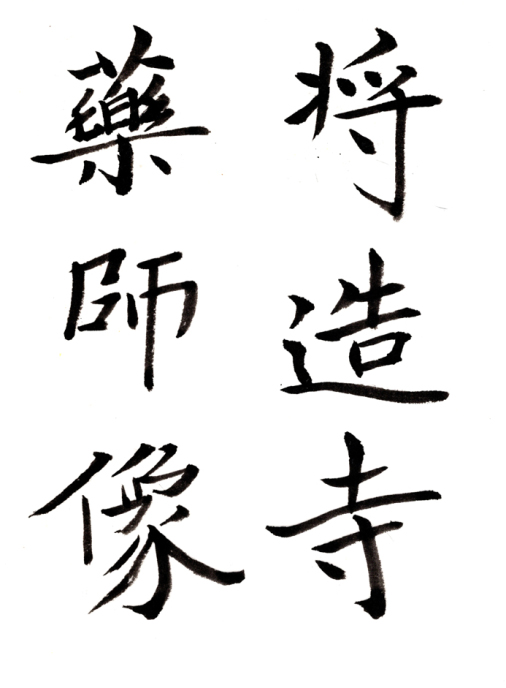 将造寺
藥師像